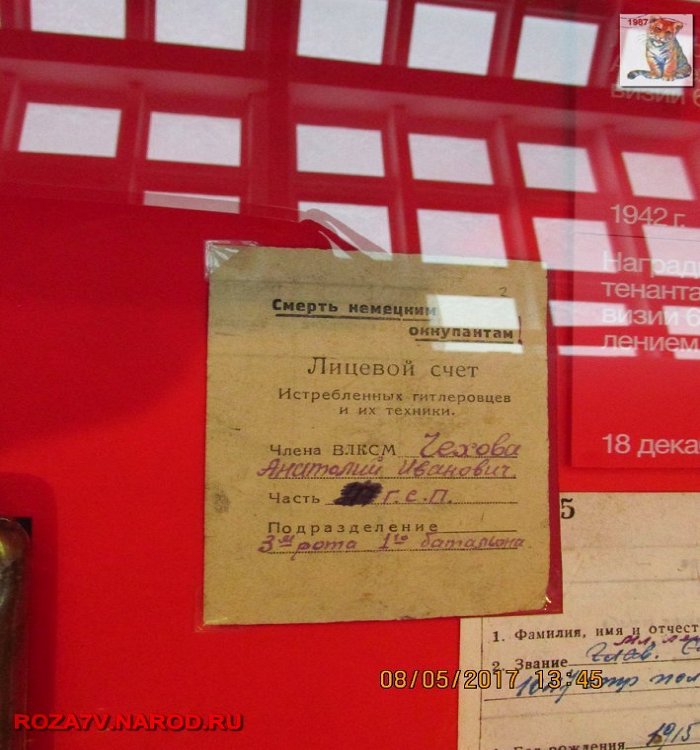 1987
визии 6
1942 г.
Награ
тенанта
визии 6
лением
18 дека
2
Смерть немецким
оккупантам
Лицевой счет
Истребленных гитлеровцев
и их техники.
Члена ВЛКСМ Чехова
Анатолий Иванович.
Часть г.с.п.
Подразделение
3-й рота 1го батальона
5
1. Фамилия, имя и отчест
2. Звание
1915
рождения
08/05/2017 13:45
ROZA7V.NAROD.RU